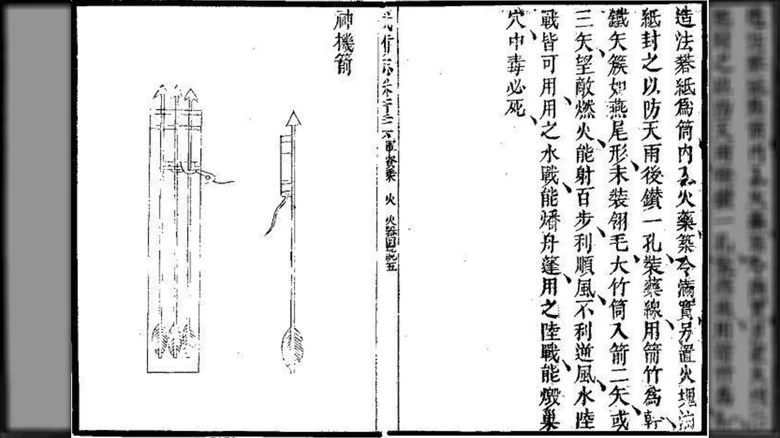 造法礬紙為筒內入火藥築令滿實另置火塊油
紙封之以防天雨後鑽一孔裝藥線用箭竹為幹
鐵矢簇如燕尾形末裝翎毛大竹筒入箭二矢或
三矢望敵燃火能射百步利順風不利逆風水陸
戰皆可用用之水戰能燔舟蓬用之陸戰能燬巢
穴中毒必死
軍資乘 火 火器圖說五
神機箭